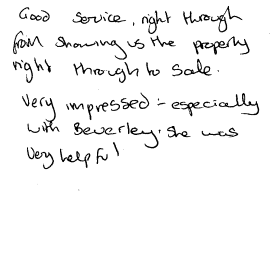 Good service, right through
from showing us the property
right through to sale.
Very impressed - especially
with Beverley. She was
very helpful